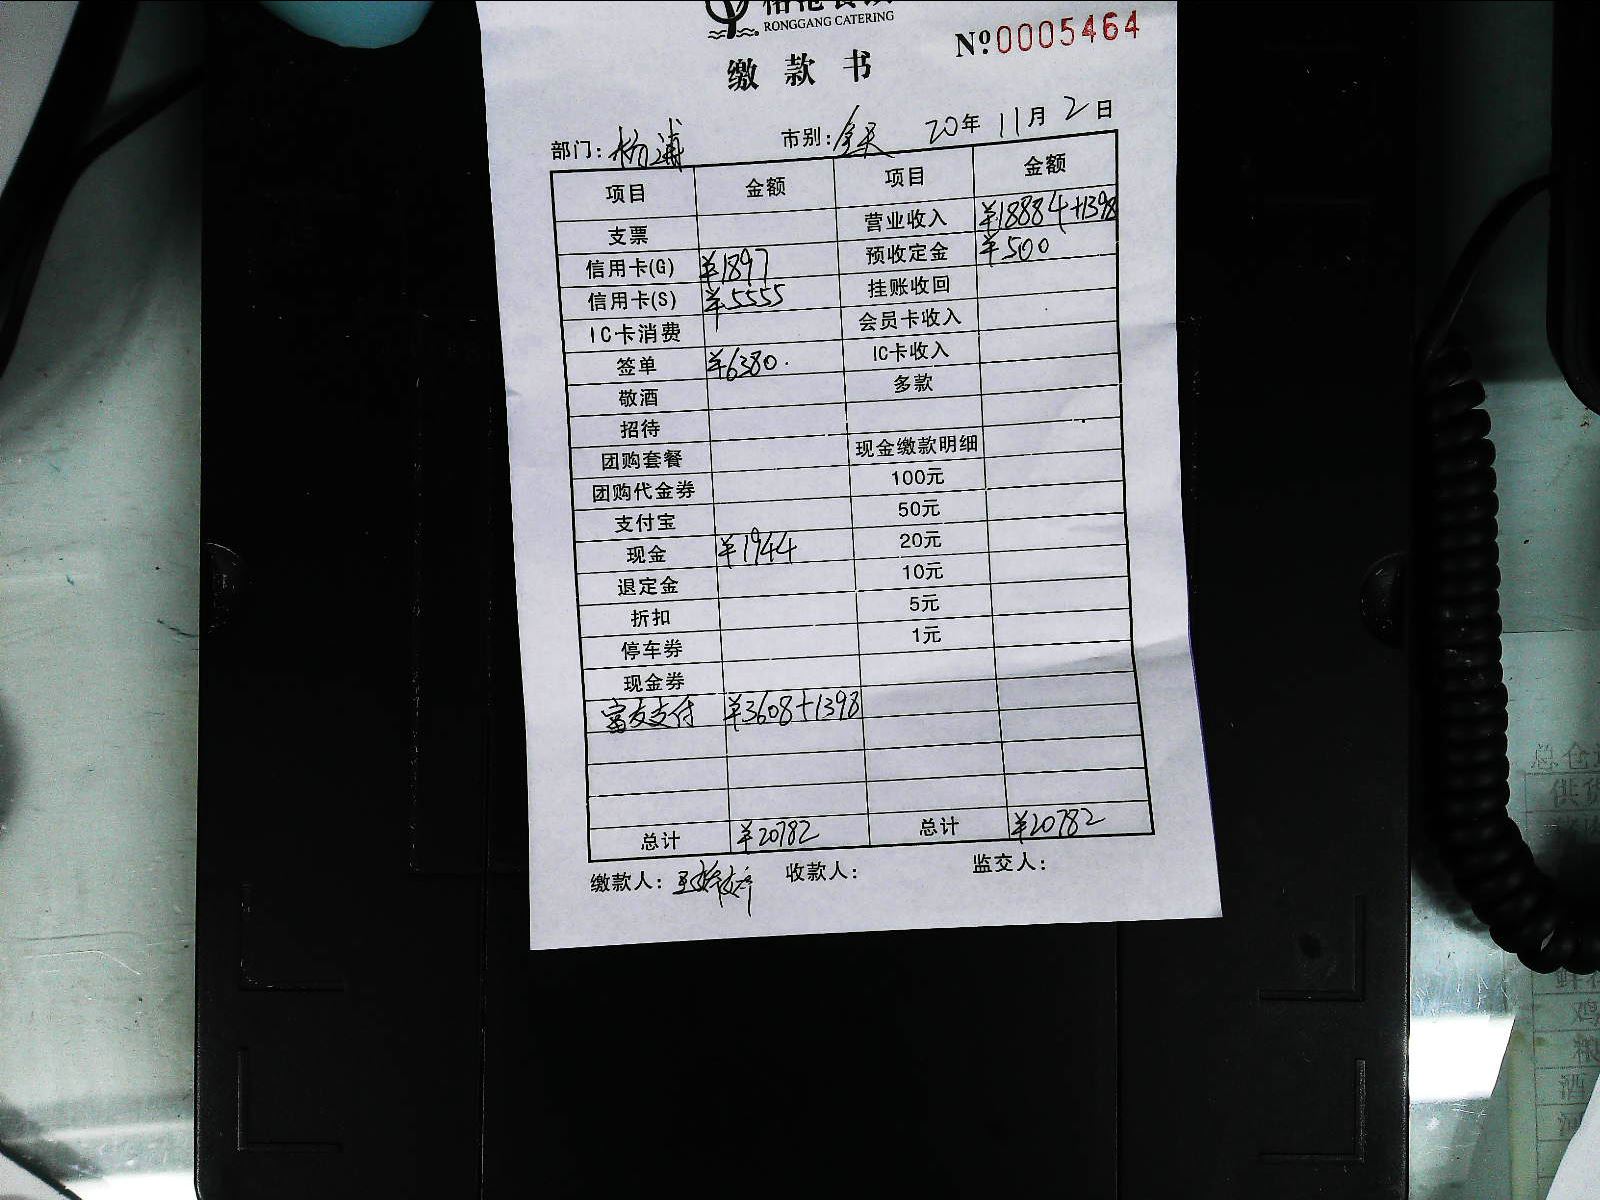 RONGGANG CATERING
No.0005464
缴款书
部门：杨浦 市别：全天 20年 11月 2日
项目 金额 项目 金额
支票 营业收入 ¥18884+1398
信用卡(G) ¥1897 预收定金 ¥500
信用卡(S) ¥5555 挂账收回
IC卡消费 会员卡收入
签单 ¥6380. IC卡收入
敬酒 多款
招待
团购套餐 现金缴款明细
团购代金券 100元
支付宝 50元
现金 ¥1944 20元
退定金 10元
折扣 5元
停车券 1元
现金券
富友支付 ¥3608+1398
总计 ¥20782 总计 ¥20782
缴款人： 收款人： 监交人：
总仓
供货
鸡
粮
酒